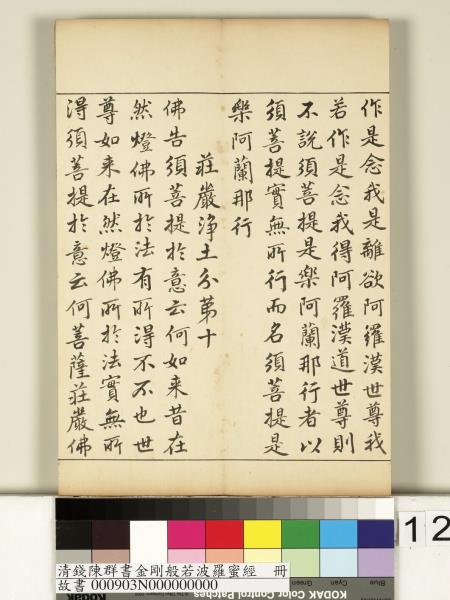 作是念我是離欲阿羅漢世尊我
若作是念我得阿羅漢道世尊則
不說須菩提是樂阿蘭那行者以
須菩提實無所行而名須菩提是
樂阿蘭那行
莊嚴淨土分第十
佛告須菩提於意云何如来昔在
然燈佛所於法有所得不不也世
尊如来在然燈佛所於法實無所
得須菩提於意云何菩薩莊嚴佛
12
清錢陳群書金剛般若波羅蜜經 冊
故書 000903N000000000
Blue Cyan Green
KODAK Color Control Patches